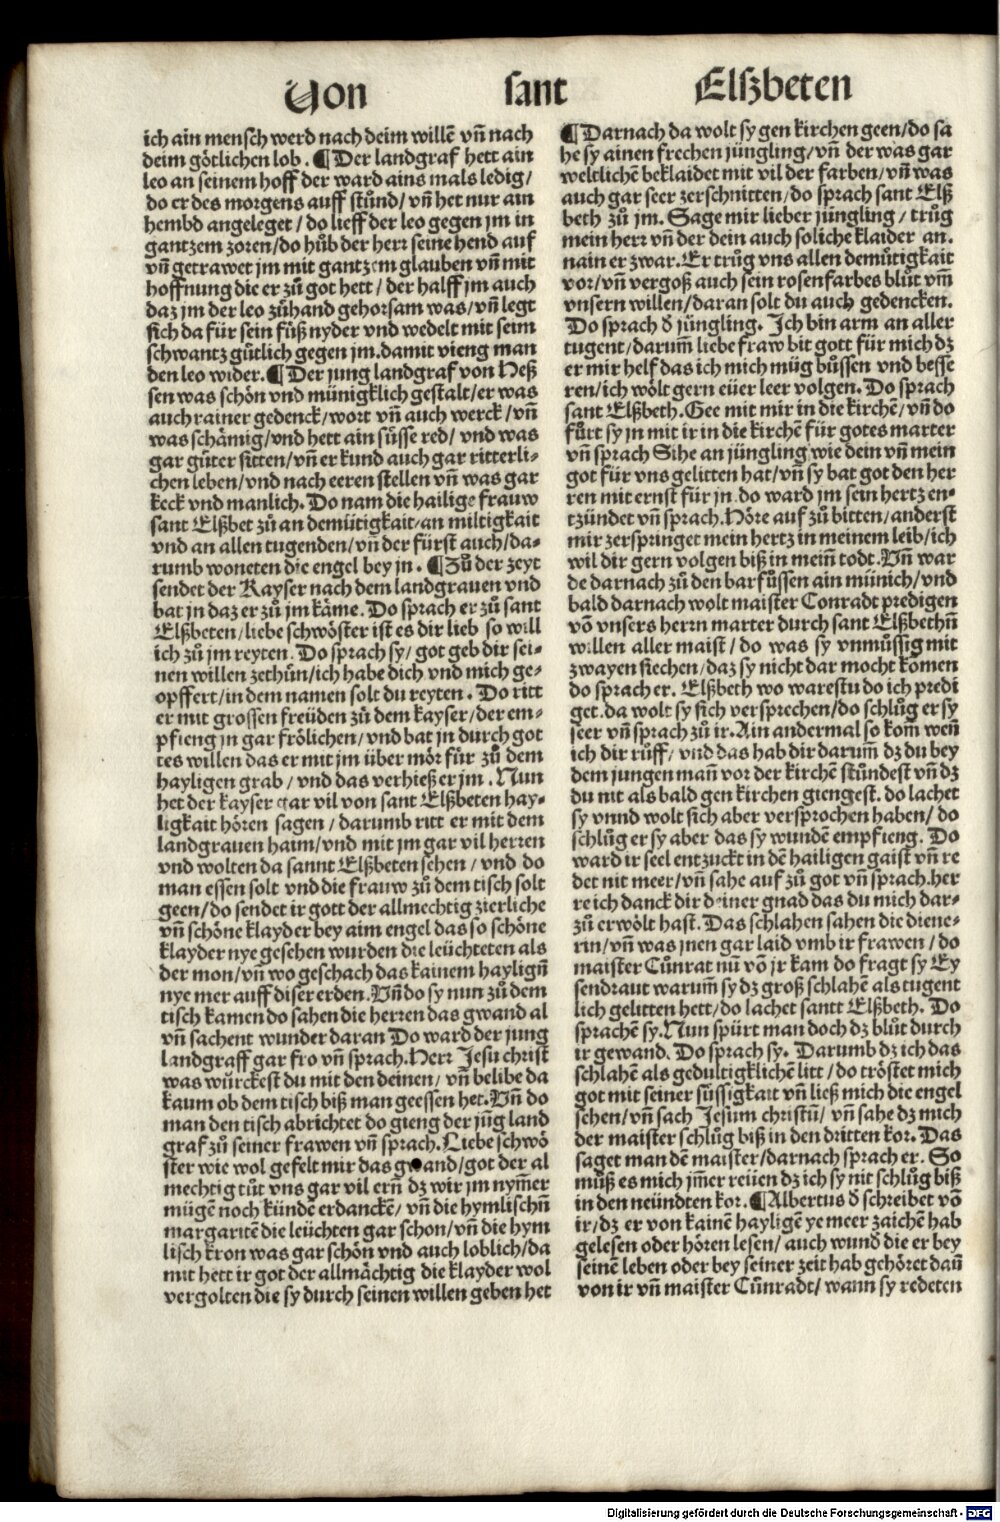 Von sant Elßbeten
ich ain mensch werd nach deim willē vñ nach
deim götlichen lob. ¶ Der landgraf hett ain
leo an seinem hoff der ward ains mals ledig/
do er des morgens auff stůnd/ vñ het nur ain
hembd angeleget/ do lieff der leo gegen jm in
gantzem zoren/do hůb der herr seine hend auf
vñ getrawet jm mit gantzem glauben vñ mit
hoffnung die er zů got hett/ der halff jm auch
daz jm der leo zůhand gehorsam was/vñ legt
sich da für sein füß nyder vnd wedelt mit seim
schwantz gůtlich gegen jm.damit vieng man
den leo wider.¶ Der jung landgraf von Heß
sen was schön vnd münigklich gestalt/er was
auch rainer gedenck/wort vñ auch werck/vñ
was schämig/vnd hett ain süsse red/ vnd was
gar gůter sitten/vñ er kund auch gar ritterli-
chen leben/vnd nach eeren stellen vñ was gar
keck vnd manlich. Do nam die hailige frauw
sant Elßbet zů an demütigkait/an miltigkait
vnd an allen tugenden/vñ der fürst auch/da-
rumb woneten die engel bey jn. ¶ Zů der zeyt
sendet der Kayser nach dem landgrauen vnd
bat jn daz er zů jm käme. Do sprach er zů sant
Elßbeten/liebe schwöster ist es dir lieb so will
ich zů jm reyten. Do sprach sy/ got geb dir sei-
nen willen zethůn/ich habe dich vnd mich ge-
opffert/in dem namen solt du reyten. Do ritt
er mit grossen freüden zů dem kayser/der em-
pfieng jn gar frölichen/vnd bat jn durch got
tes willen das er mit jm über mör für zů dem
hayligen grab/ vnd das verhieß er jm. Nun
het der kayser gar vil von sant Elßbeten hay-
ligkait hören sagen/ darumb ritt er mit dem
landgrauen haim/vnd mit jm gar vil herren
vnd wolten da sannt Elßbeten sehen/ vnd do
man essen solt vnd die frauw zů dem tisch solt
geen/do sendet ir gott der allmechtig zierliche
vñ schöne klayder bey aim engel das so schöne
klayder nye gesehen wurden die leüchteten als
der mon/vñ wo geschach das kainem hayligñ
nye mer auff diser erden.Vñ do sy nun zů dem
tisch kamen do sahen die herren das gwand al
vñ sachent wunder daran Do ward der jung
landgraff gar fro vñ sprach.Herr Jesu christ
was würckest du mit den deinen/ vñ belibe da
kaum ob dem tisch biß man geessen het.Vñ do
man den tisch abrichtet do gieng der jüg land
graf zů seiner frawen vñ sprach.Liebe schwö
ster wie wol gefelt mir das gwand/got der al
mechtig tůt vns gar vil ern̄ dz wir jm nym̄er
mügē noch kündē erdanckē/ vñ die hymlischñ
margaritē die leüchten gar schon/vñ die hym
lisch kron was gar schön vnd auch loblich/da
mit hett ir got der allmächtig die klayder wol
vergolten die sy durch seinen willen geben het
¶ Darnach da wolt sy gen kirchen geen/do sa
he sy ainen frechen jüngling/vñ der was gar
weltlichē beklaidet mit vil der farben/vñ was
auch gar seer zerschnitten/do sprach sant Elß
beth zů jm. Sage mir lieber jüngling/ trůg
mein herr vñ der dein auch soliche klaider an.
nain er zwar.Er trůg vns allen demütigkait
vor/vñ vergoß auch sein rosenfarbes blůt vm̄
vnsern willen/daran solt du auch gedencken.
Do sprach ð jüngling. Ich bin arm an aller
tugent/darum̄ liebe fraw bit gott für mich dz
er mir helf das ich mich müg büssen vnd besse
ren/ich wölt gern eüer leer volgen. Do sprach
sant Elßbeth.Gee mit mir in die kirchē/vñ do
fůrt sy jn mit ir in die kirchē für gotes marter
vñ sprach Sihe an jüngling wie dein vñ mein
got für vns gelitten hat/vñ sy bat got den her
ren mit ernst für jn.do ward jm sein hertz en-
tzündet vñ sprach.Höre auf zů bitten/anderst
mir zerspringet mein hertz in meinem leib/ich
wil dir gern volgen biß in mein̄ todt.Vñ war
de darnach zů den barfůssen ain münich/vnd
bald darnach wolt maister Conradt predigen
vō vnsers herrn marter durch sant Elßbethñ
willen aller maist/ do was sy vnmüssig mit
zwayen siechen/daz sy nicht dar mocht komen
do sprach er. Elßbeth wo warestu do ich predi
get.da wolt sy sich versprechen/do schlůg er sy
seer vñ sprach zů ir.Ain andermal so kom̄ weñ
ich dir rüff/ vnd das hab dir darum̄ dz du bey
dem jungen mañ vor der kirchē stündest vñ dz
du nit als bald gen kirchen giengest. do lachet
sy vnnd wolt sich aber versprochen haben/ do
schlůg er sy aber das sy wundē empfieng. Do
ward ir seel entzuckt in dē hailigen gaist vñ re
det nit meer/vñ sahe auf zů got vñ sprach.her
re ich danck dir deiner gnad das du mich dar-
zů erwölt hast. Das schlahen sahen die diene-
rin/vñ was jnen gar laid vmb ir frawen/ do
maister Cůnrat nū vō jr kam do fragt sy Ey
sendraut warum̄ sy dz groß schlahē als tugent
lich gelitten hett/do lachet santt Elßbeth. Do
sprachē sy.Nun spürt man doch dz blůt durch
ir gewand. Do sprach sy. Darumb dz ich das
schlahē als gedultigklichē litt/ do tröstet mich
got mit seiner süssigkait vñ ließ mich die engel
sehen/vñ sach Jesum christū/ vñ sahe dz mich
der maister schlůg biß in den dritten kor. Das
saget man dē maister/darnach sprach er. So
můß es mich jm̄er reüen dz ich sy nit schlůg biß
in den neündten kor.¶ Albertus ð schreibet vō
ir/dz er von kainē hayligē ye meer zaichē hab
gelesen oder hören lesen/ auch wunð die er bey
seinē leben oder bey seiner zeit hab gehöret dañ
von ir vñ maister Cůnradt/ wann sy redeten
Digitalisierung gefördert durch die Deutsche Forschungsgemeinschaft - DFG